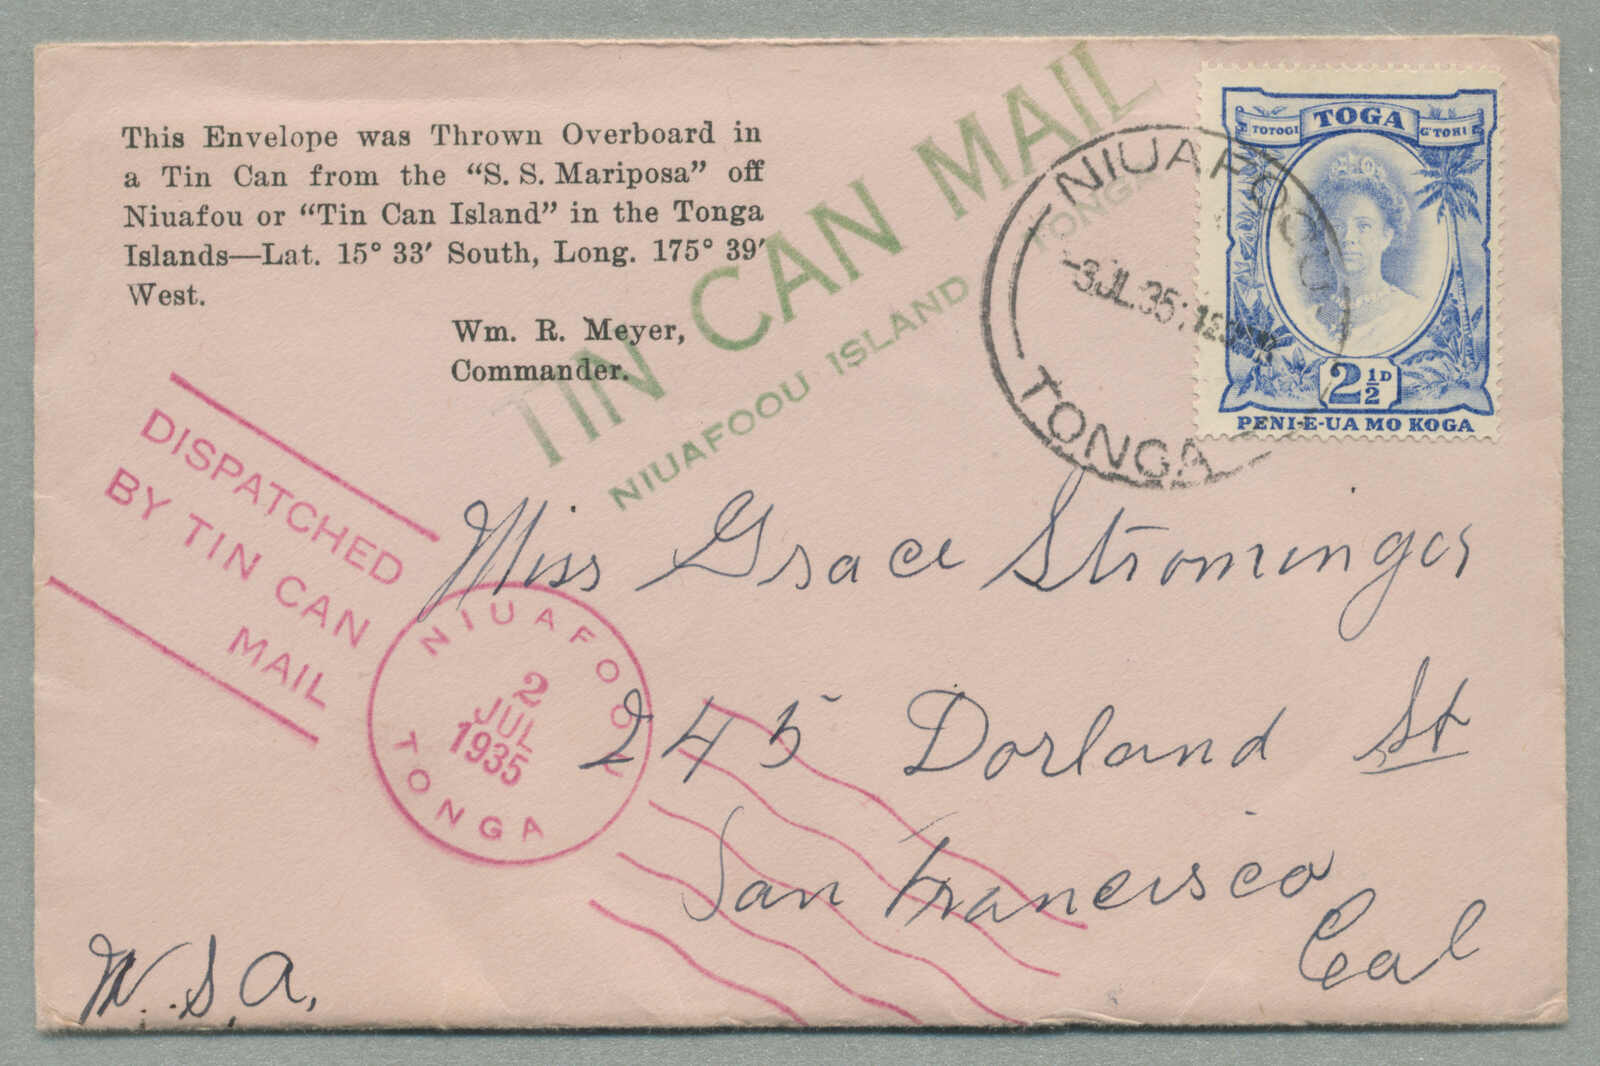 This Envelope was Thrown Overboard in
a Tin Can from the “S. S. Mariposa” off
Niuafou or “Tin Can Island” in the Tonga
Islands—Lat. 15° 33′ South, Long. 175° 39′
West.
Wm. R. Meyer,
Commander.
TIN CAN MAIL
NIUAFOOU ISLAND TONGA
NIUAFOOU
-3JL.35
TONGA
TOTOGI TOGA
2½D
PENI-E-UA MO KOGA
DISPATCHED
BY TIN CAN
MAIL
NIUAFOOU
2
JUL
1935
TONGA
Miss Grace Strominger
245 Dorland St
San Francisco
Cal
U.S.A.